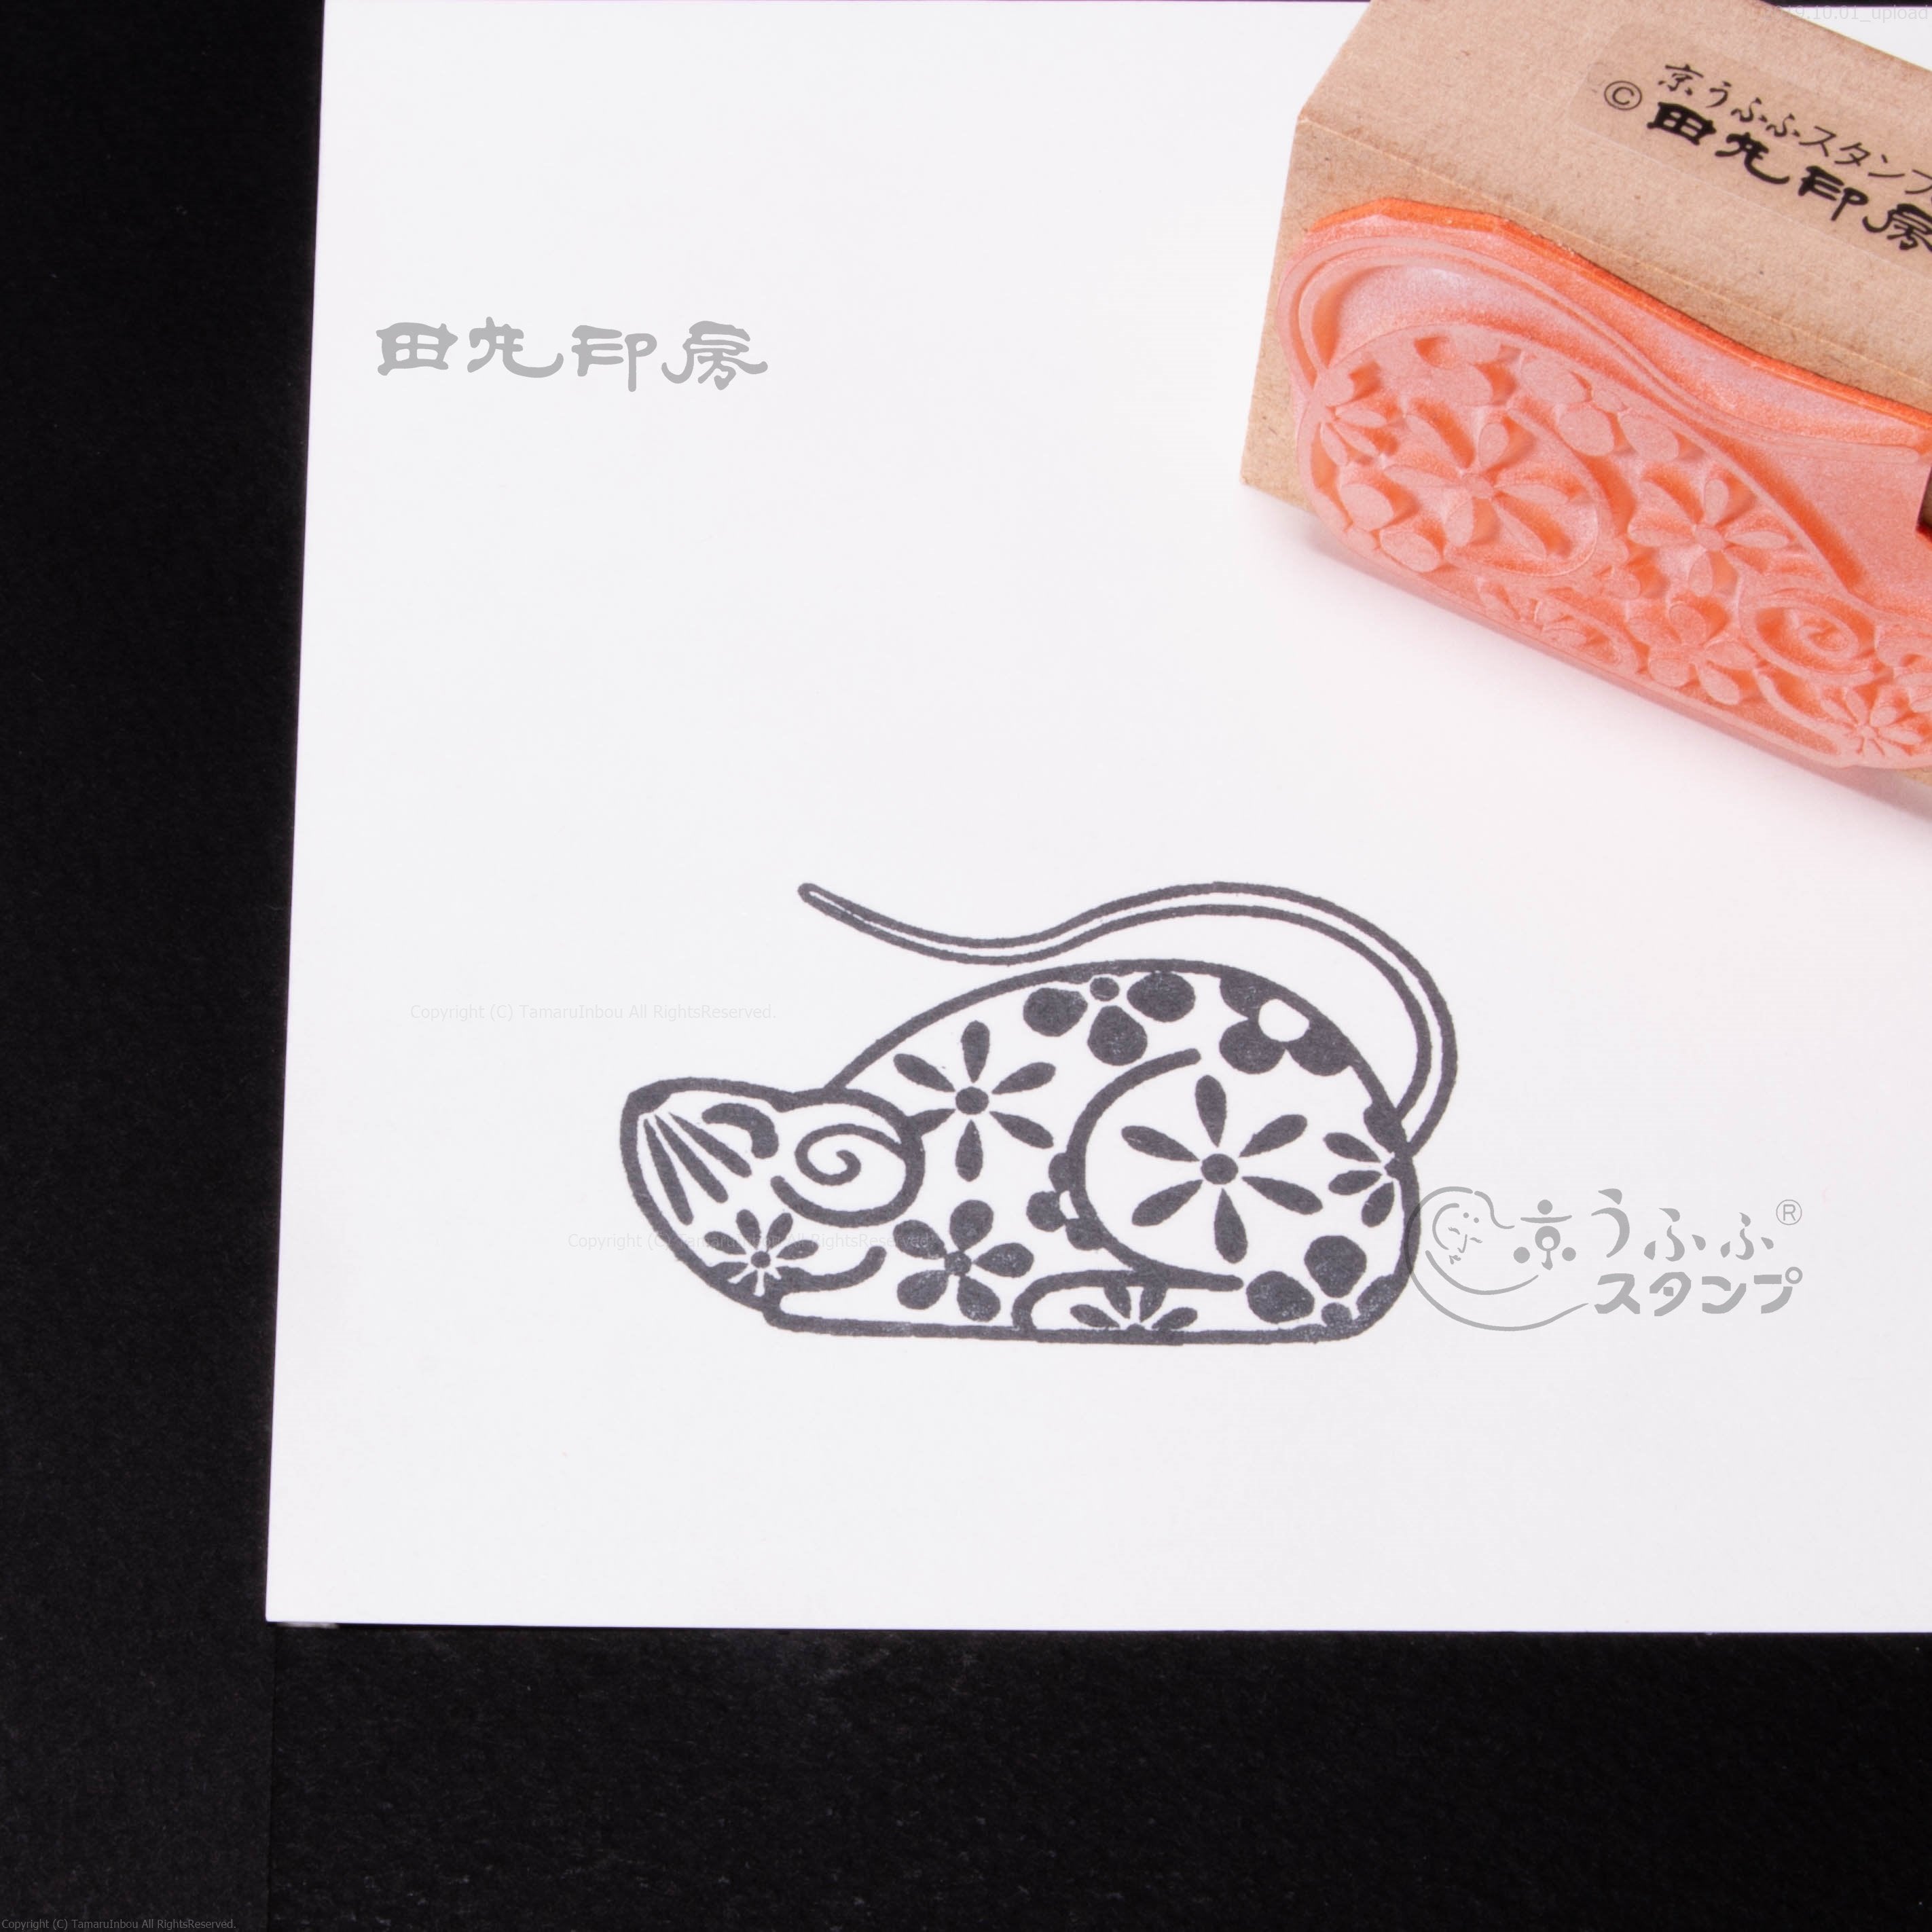 10.01_upload
京うふふスタンプ
©田丸印房
田丸印房
Copyright (C) TamaruInbou All RightsReserved.
京うふふ®
スタンプ
Copyright (C) TamaruInbou All RightsReserved.
Copyright (C) TamaruInbou All RightsReserved.